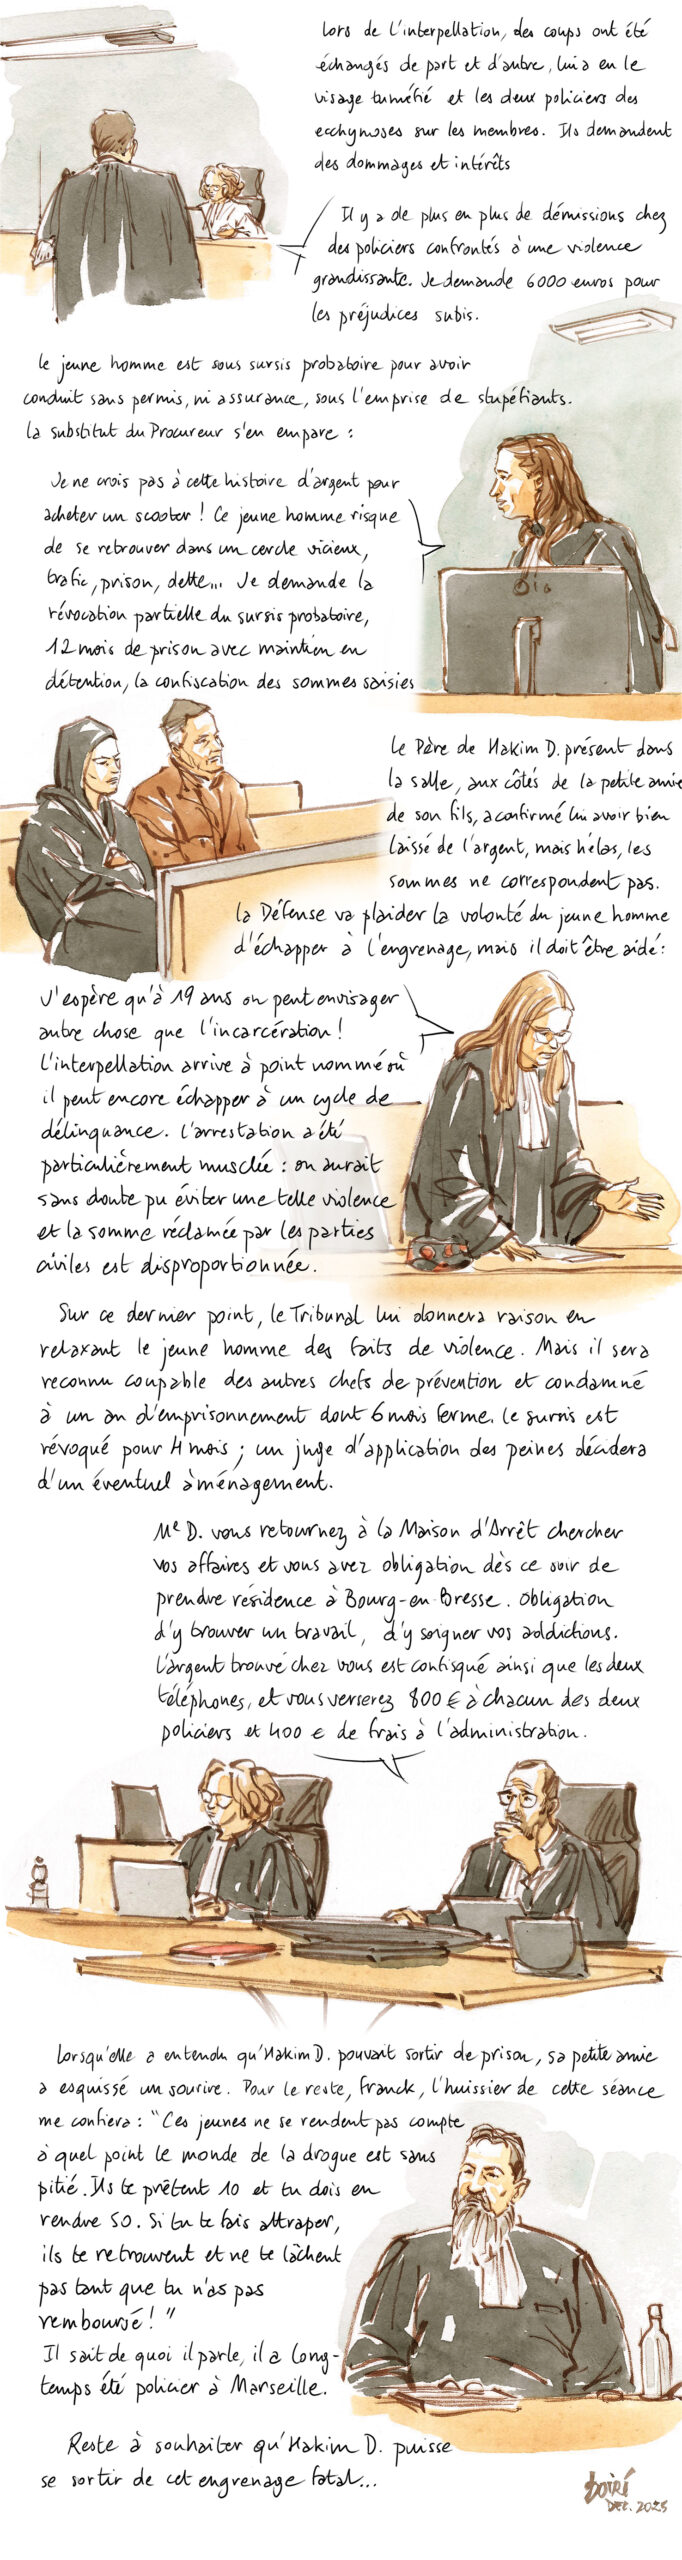 Lors de l'interpellation, des coups ont été
échangés de part et d'autre, lui a eu le
visage tuméfié et les deux policiers des
ecchymoses sur les membres. Ils demandent
des dommages et intérêts
Il y a de plus en plus de démissions chez
des policiers confrontés à une violence
grandissante. Je demande 6000 euros pour
les préjudices subis.
Le jeune homme est sous sursis probatoire pour avoir
conduit sans permis, ni assurance, sous l'emprise de stupéfiants.
La substitut du Procureur s'en empare :
Je ne crois pas à cette histoire d'argent pour
acheter un scooter ! Ce jeune homme risque
de se retrouver dans un cercle vicieux,
trafic, prison, dette... Je demande la
révocation partielle du sursis probatoire,
12 mois de prison avec maintien en
détention, la confiscation des sommes saisies
Le Père de Hakim D. présent dans
la salle, aux côtés de la petite amie
de son fils, a confirmé lui avoir bien
laissé de l'argent, mais hélas, les
sommes ne correspondent pas.
La Défense va plaider la volonté du jeune homme
d'échapper à l'engrenage, mais il doit être aidé :
J'espère qu'à 19 ans on peut envisager
autre chose que l'incarcération !
L'interpellation arrive à point nommé où
il peut encore échapper à un cycle de
délinquance. L'arrestation a été
particulièrement musclée : on aurait
sans doute pu éviter une telle violence
et la somme réclamée par les parties
civiles est disproportionnée.
Sur ce dernier point, le Tribunal lui donnera raison en
relaxant le jeune homme des faits de violence. Mais il sera
reconnu coupable des autres chefs de prévention et condamné
à un an d'emprisonnement dont 6 mois ferme. Le sursis est
révoqué pour 4 mois ; un juge d'application des peines décidera
d'un éventuel aménagement.
Mr D. vous retournez à la Maison d'Arrêt chercher
vos affaires et vous avez obligation dès ce soir de
prendre résidence à Bourg-en-Bresse. Obligation
d'y trouver un travail, d'y soigner vos addictions.
L'argent trouvé chez vous est confisqué ainsi que les deux
téléphones, et vous verserez 800 € à chacun des deux
policiers et 400 € de frais à l'administration.
Lorsqu'elle a entendu qu'Hakim D. pouvait sortir de prison, sa petite amie
a esquissé un sourire. Pour le reste, Franck, l'huissier de cette séance
me confiera : "Ces jeunes ne se rendent pas compte
à quel point le monde de la drogue est sans
pitié. Ils te prêtent 10 et tu dois en
rendre 50. Si tu te fais attraper,
ils te retrouvent et ne te lâchent
pas tant que tu n'as pas
remboursé ! "
Il sait de quoi il parle, il a long-
temps été policier à Marseille.
Reste à souhaiter qu'Hakim D. puisse
se sortir de cet engrenage fatal...
DEC. 2025